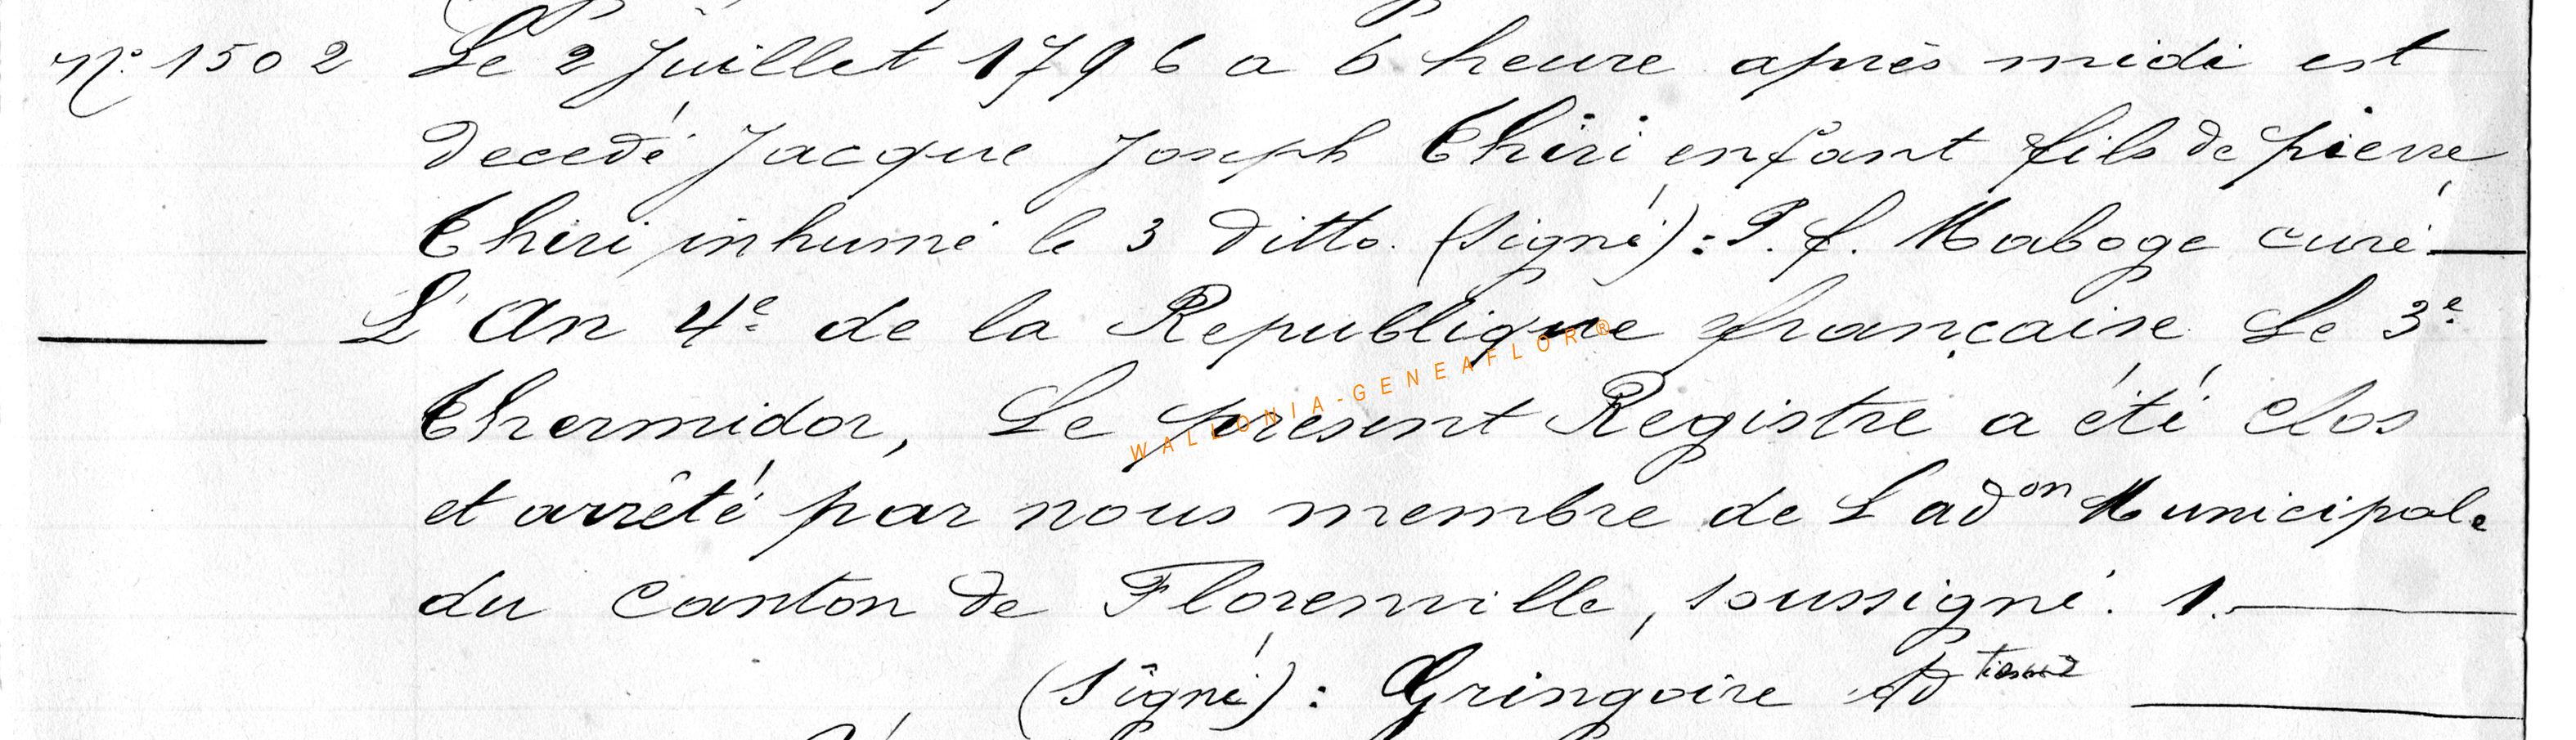 N° 1502 Le 2 Juillet 1796 a 6 heure après midi est
decedé Jacque Joseph Thiri enfant fils de pierre
Thiri inhumé le 3 ditto. (signé) : P. f. Maboge curé
L'An 4e de la Republique française Le 3e
Thermidor, Le présent Registre a été clos
et arrêté par nous membre de L'adon Municipale
du Canton de Florenville, soussigné. 1.
(signé) : Gringoire Ad
WALLONIA-GENEAFLOR®